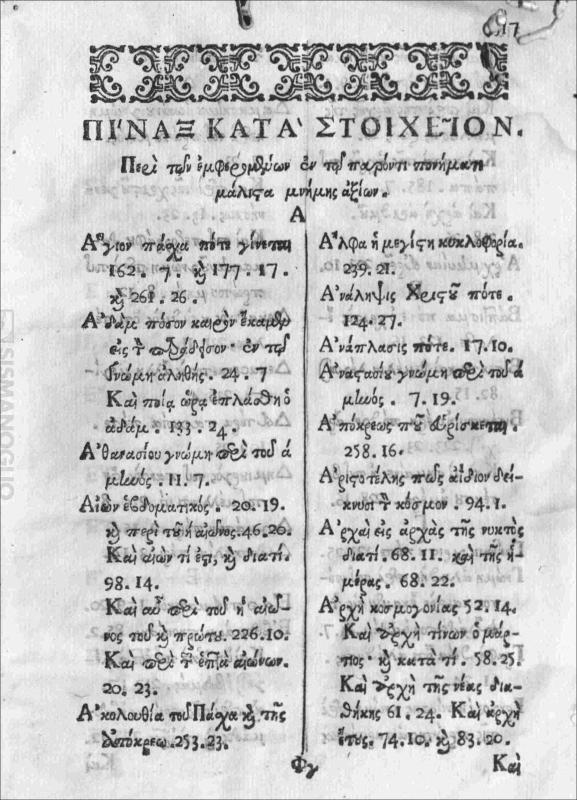 17
ΠΙ'ΝΑΞ ΚΑΤΑ' ΣΤΟΙΧΕΙ͂ΟΝ.
Περὶ τῶν ἐμφερομένων ἐν τῷ παρόντι πονήματι
μάλιστα μνήμης ἀξίων.
Α
Ἅγιον πάσχα πότε γίνεται
162. 7. καὶ 177. 17.
καὶ 261. 26.
Ἀδὰμ πόσον καιρὸν ἔκαμεν
εἰς τὸν παράδεισον· ἐν τῷ
γνώμη ἀληθής. 24. 7
Καὶ ποίᾳ ὥρᾳ ἐπλάσθη ὁ
ἀδάμ. 133. 24.
Ἀθανασίου γνώμη περὶ τοῦ ά
μηνός. 11. 7.
Αἰὼν ἑβδοματικός. 20. 19.
καὶ περὶ τοῦ ή αἰῶνος. 46. 20.
Καὶ αἰὼν τί ἐστι, καὶ διατί.
98. 14.
Καὶ αὖ περὶ τοῦ ή αἰῶ-
νος τοῦ καὶ πρώτου. 226. 10.
Καὶ περὶ τῶν ἑπτὰ αἰώνων.
20. 23.
Ἀκολουθία τοῦ Πάσχα καὶ τῆς
ἀπόκρεω. 253. 23.
Ἄλφα ἡ μεγίστη κυκλοφορία.
239. 21.
Ἀνάληψις Χριστοῦ πότε.
124. 27.
Ἀνάπλασις πότε. 17. 10.
Ἀναστασίου γνώμη περὶ τοῦ ά
μηνός. 7. 19.
Ἀπόκρεως ποῦ εὑρίσκεται.
258. 16.
Ἀριστοτέλης πῶς ἀΐδιον δεί-
κνυσι τὸν κόσμον. 94. 1.
Ἀρχαὶ εἰς ἀρχὰς τῆς νυκτὸς
διατί. 68. 11. καὶ τῆς ἡ-
μέρας. 68. 22.
Ἀρχὴ κοσμογονίας 52. 14.
Καὶ ἀρχὴ τίνων ὁ μάρ-
τιος· καὶ κατὰ τί. 58. 25.
Καὶ ἀρχὴ τῆς νέας δια-
θήκης 61. 24. Καὶ ἀρχὴ
ἔτους. 74. 10. καὶ 83. 20.
Καὶ
SISMANOGLIO